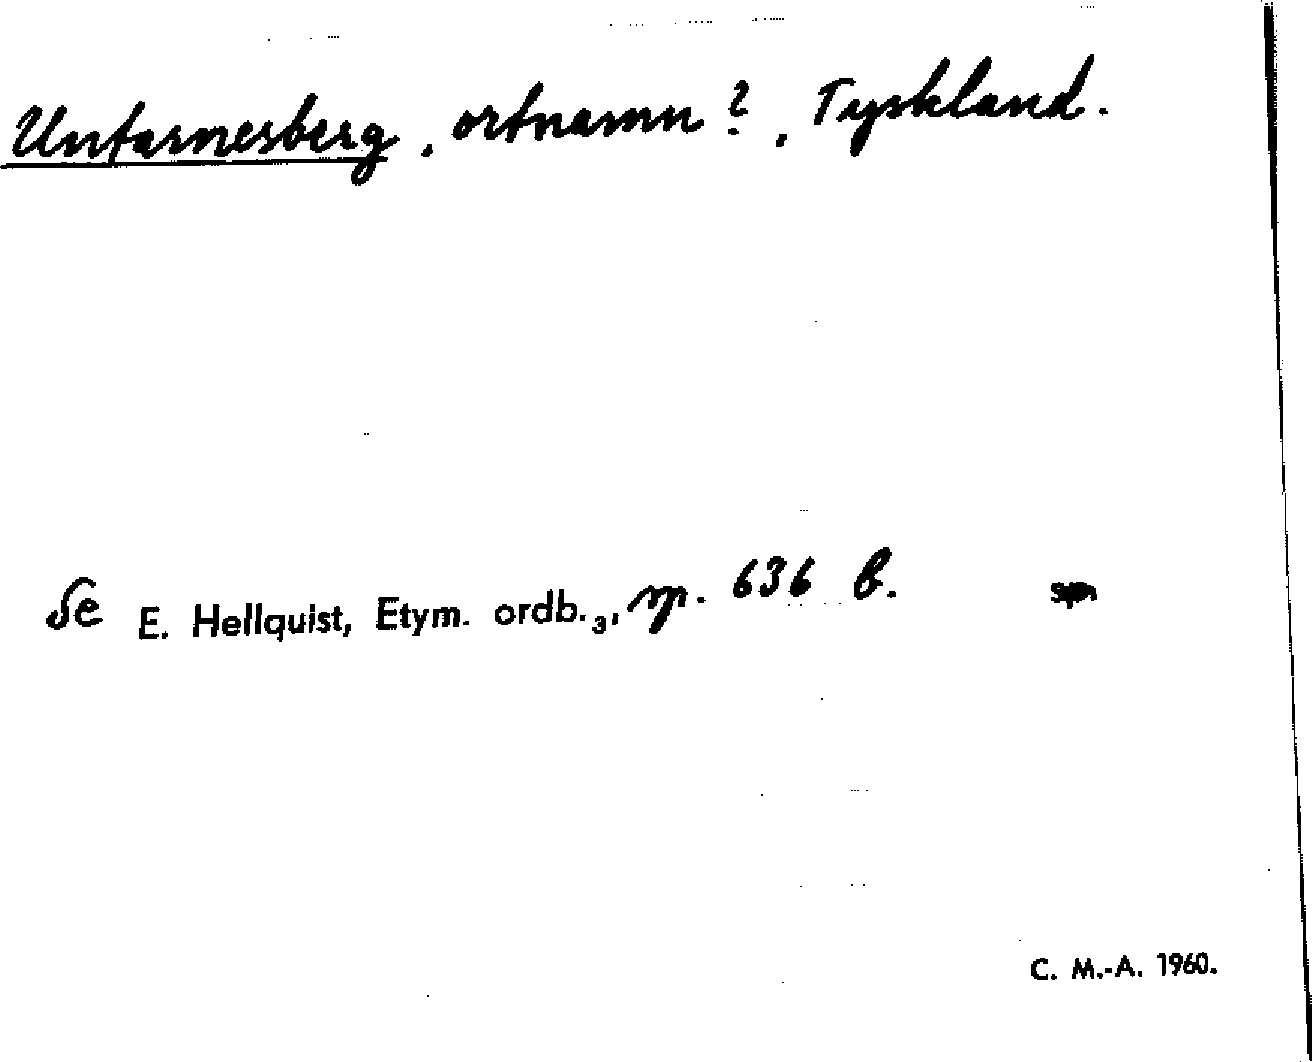 Untarnesberg, ortnamn?, Tyskland.
Se E. Hellquist, Etym. ordb.3, sp. 636 b.
C. M.-A. 1960.